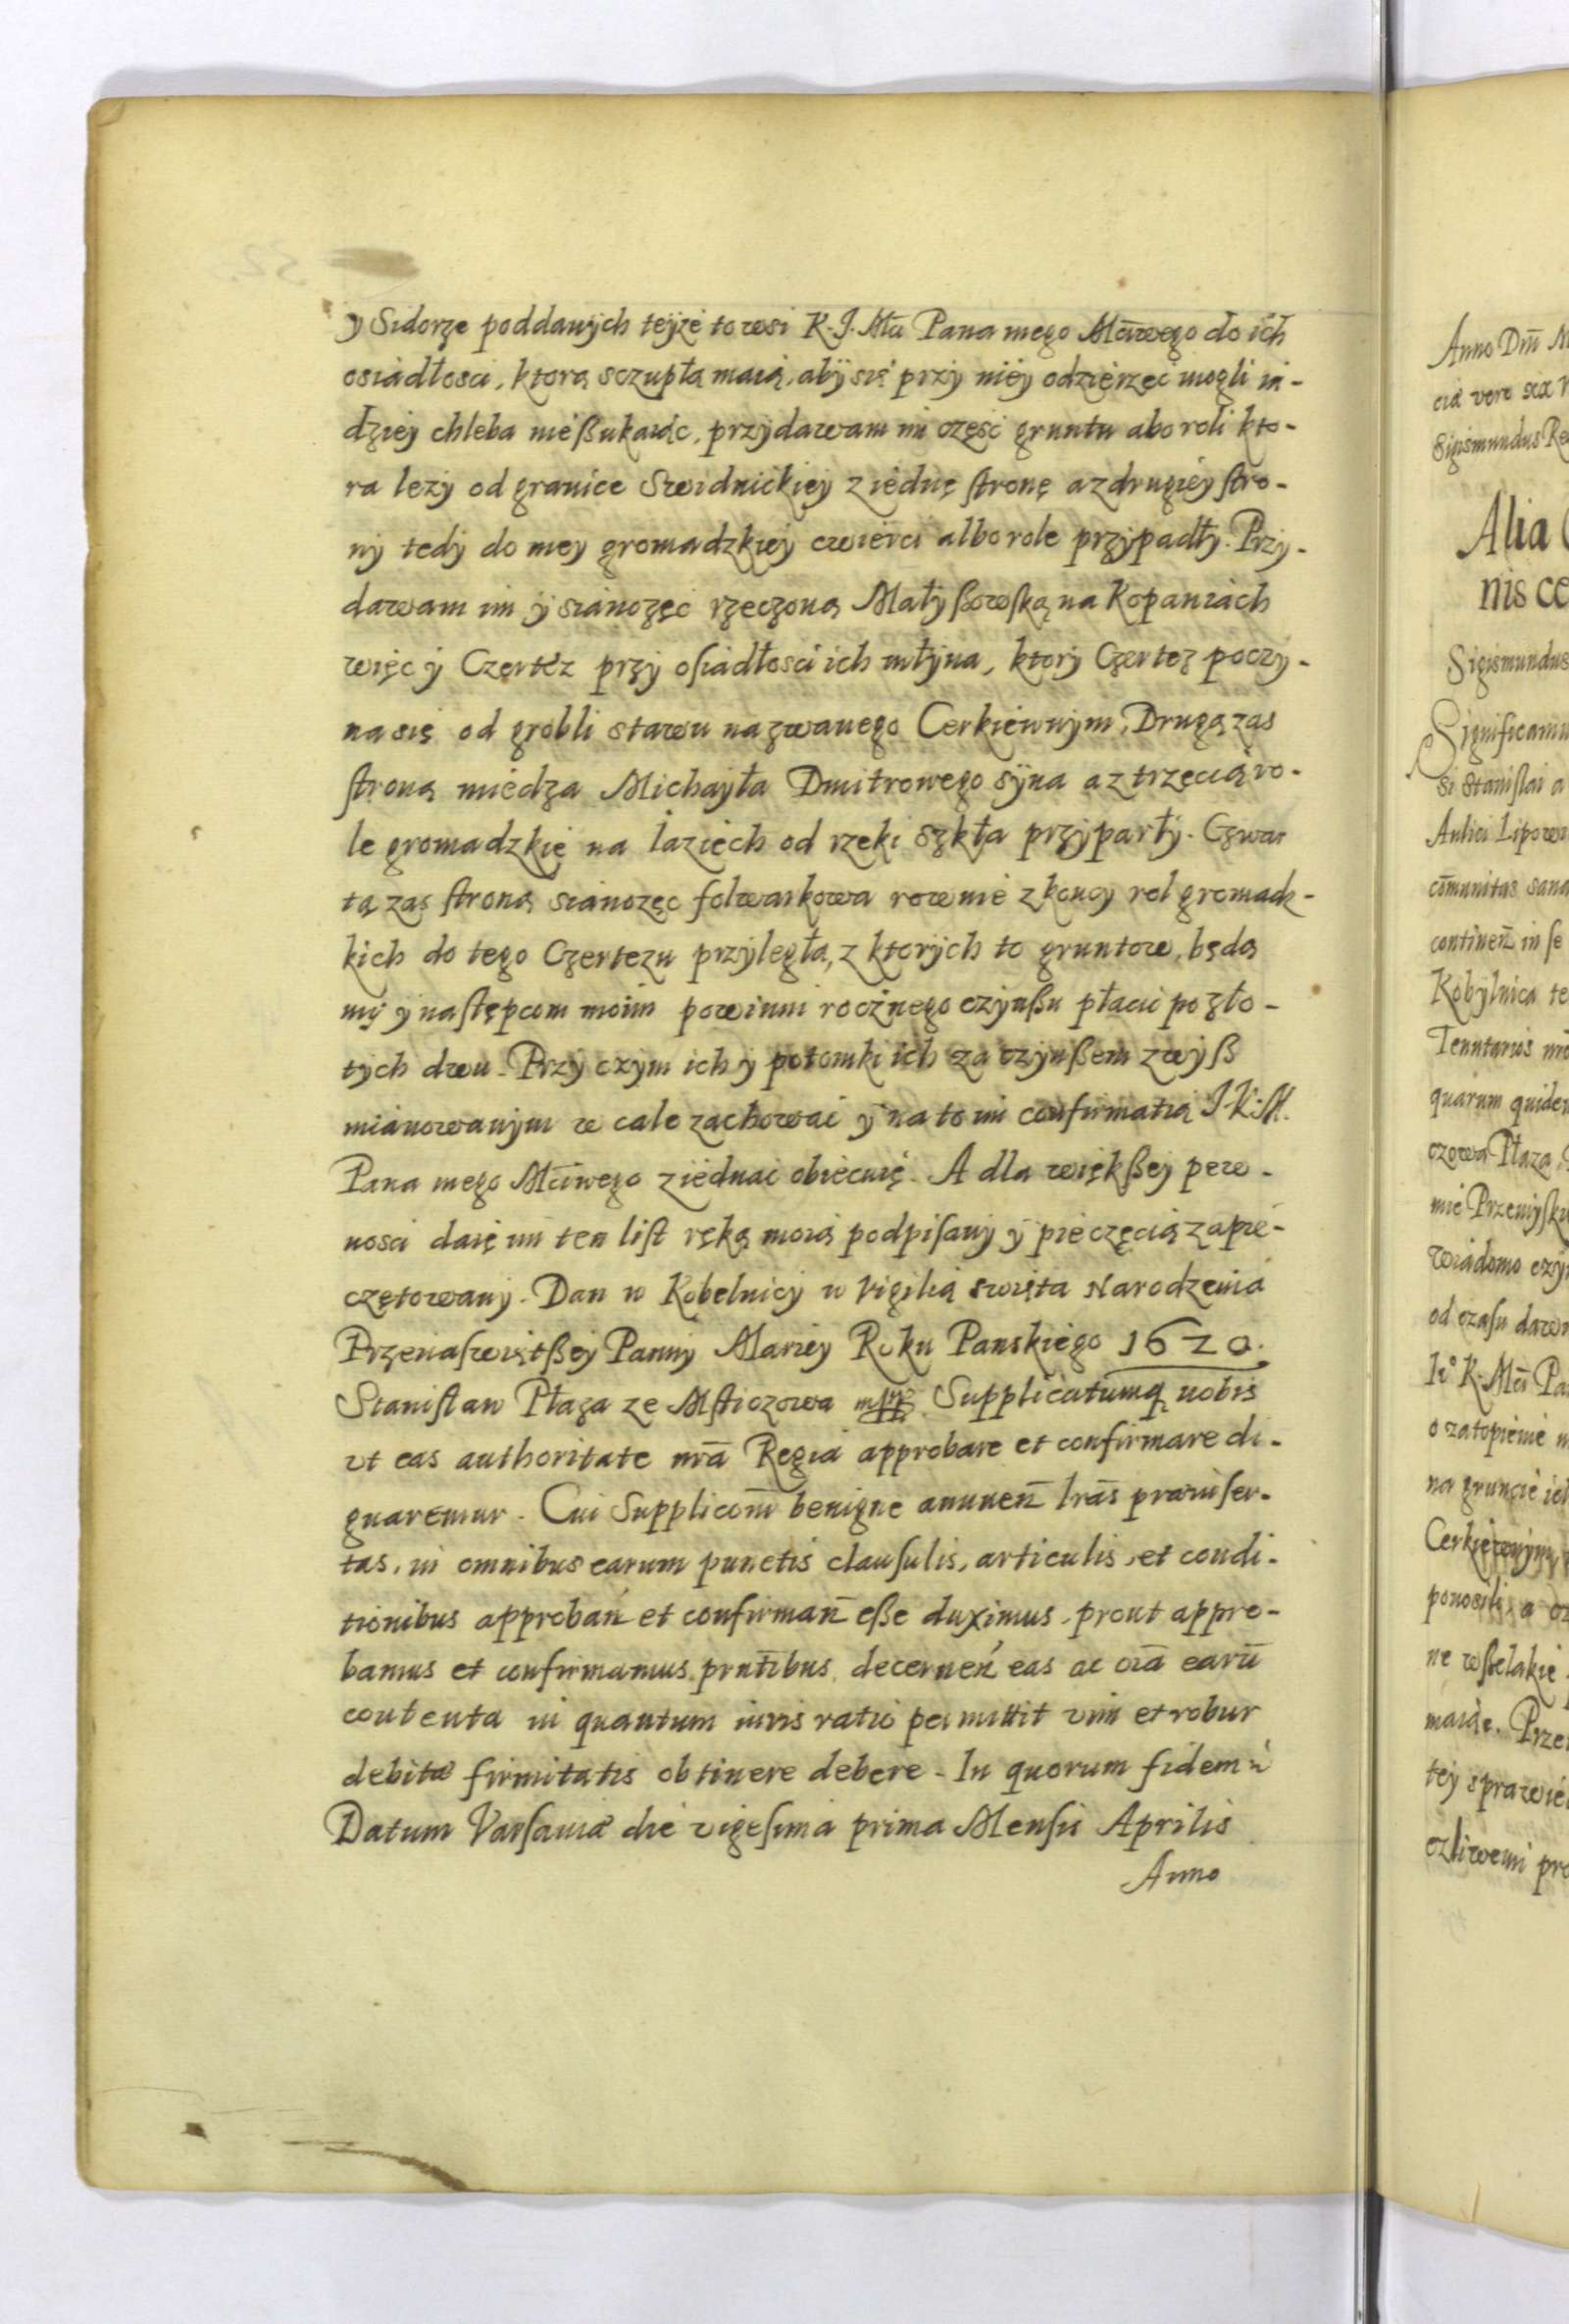 y Sidorze poddanych teyże to wsi K. J. Mći Pana mego Mćiwego do ich
osiadłosci, ktorą sczupłą maią, aby się przy niey odzierzeć mogli in-
dziey chleba nie ßukaiąc, przydawam im część gruntu abo roli kto-
ra leży od granice Swidnickiey z iednę stronę a z drugiey stro-
ny tedy do mey gromadzkiey cwierci albo role przypadły. Przy-
dawam im y sianożęć rzeczoną Małyßowską na Kopaniach
więc y Czertéz przy osiadłosci ich młyna, ktory Czertez poczy-
na się od grobli stawu nazwanego Cerkiewnym, Drugą zas
stroną miedza Michayła Dmitrowego syna a z trzecią ro-
le gromadzkie na łaziech od rzeki szkła przyparły. Czwar
tą zas stroną sianożęc folwarkowa rownie z koncy rol gromadz-
kich do tego Czertezu przyległa, z ktorych to gruntow, będą
mi y następcom moim powinni rocznego czynßu płacić po zło-
tych dwu. Przy czym ich y potomki ich za czynßem zwyß
mianowanym w cale zachować y na to im confirmatią J. K. M.
Pana mego Mćiwego ziednać obiecuię. A dla więkßey pew-
nosci daię im ten list ręką moią podpisany y pieczęcią zapie-
czętowany. Dan w Kobelnicy w Vigilią swięta Narodzenia
Przenaswiętßey Panny Mariey Roku Panskiego 1620.
Stanislaw Płaza ze Msticzowa mpp. Supplicatumq; nobis
vt eas authoritate nrã Regia approbare et confirmare di-
gnaremur. Cui Supplicõni benigne annuen̄ lrãs præinser-
tas, in omnibus earum punctis clausulis, articulis, et condi-
tionibus approban̄ et confirman̄ eße duximus, prout appro-
bamus et confirmamus prñtibus decernen̄ eas ac oĩa earũ
contenta in quantum iuris ratio permittit vim et robur
debitæ firmitatis obtinere debere. In quorum fidem
Datum Varsaviæ die vigesima prima Mensis Aprilis
Anno
Anno Dñi
cia vero
Sigismundus
Alia
nis
Sigismundus
Significamus
si Stanislai a
Aulici
cõmunitas
continen̄ in se
Kobylnica
Tenutarius
quarum
Płaza
mie
wiadomo
od czasu
K. Mći
o zatopienie
na gruncie
Cerkiewnym
ponosili, a
ne wßelakie
maią.
tey